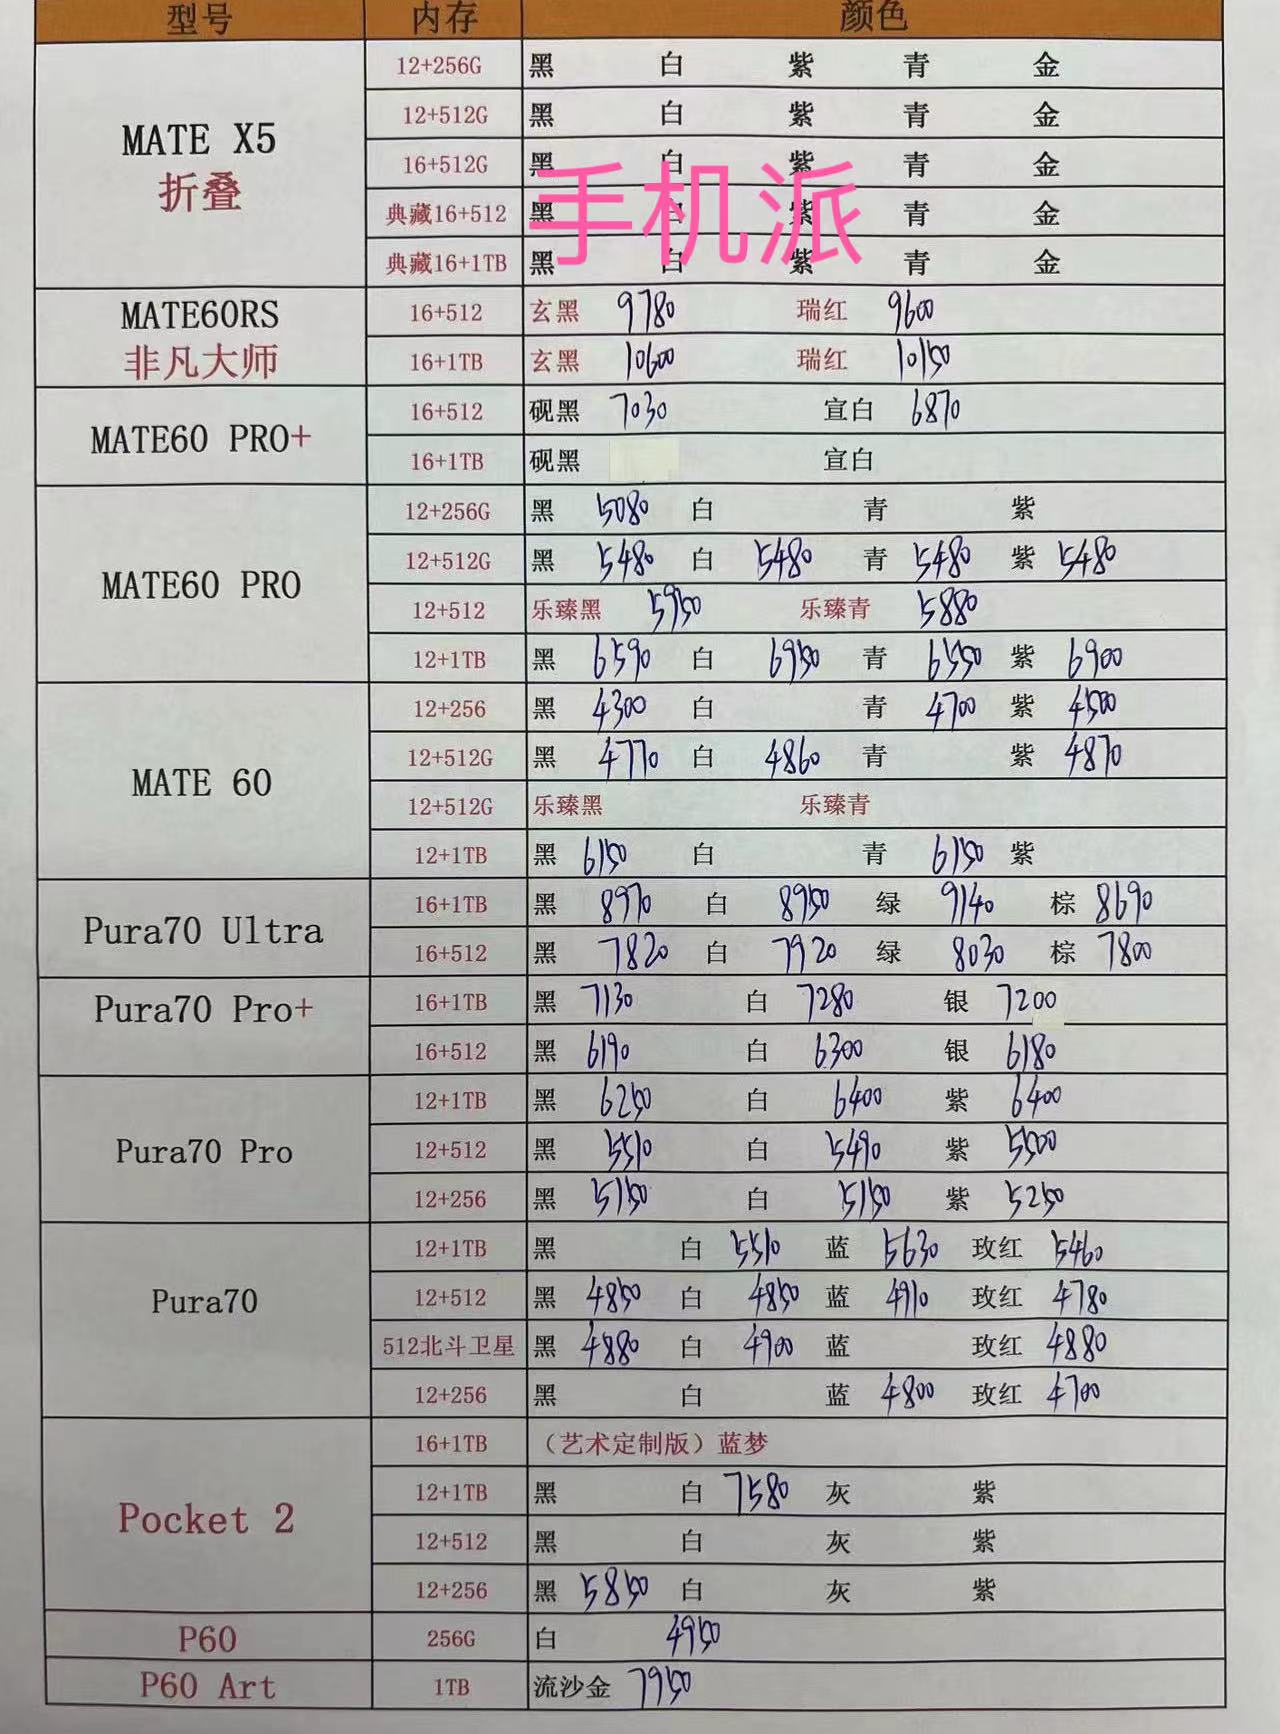 型号 内存 颜色
MATE X5 折叠 12+256G 黑 白 紫 青 金
12+512G 黑 白 紫 青 金
16+512G 黑 白 紫 青 金
手机派
典藏16+512 黑 白 紫 青 金
典藏16+1TB 黑 白 紫 青 金
MATE60RS 16+512 玄黑 9780 瑞红 9600
非凡大师 16+1TB 玄黑 10600 瑞红 10150
MATE60 PRO+ 16+512 砚黑 7030 宣白 6870
16+1TB 砚黑 宣白
MATE60 PRO 12+256G 黑 5080 白 青 紫
12+512G 黑 5480 白 5480 青 5480 紫 5480
12+512 乐臻黑 5950 乐臻青 5880
12+1TB 黑 6590 白 6950 青 6550 紫 6900
MATE 60 12+256 黑 4300 白 青 4700 紫 4500
12+512G 黑 4770 白 4860 青 紫 4870
12+512G 乐臻黑 乐臻青
12+1TB 黑 6150 白 青 6150 紫
Pura70 Ultra 16+1TB 黑 8970 白 8950 绿 9140 棕 8690
16+512 黑 7820 白 7920 绿 8030 棕 7800
Pura70 Pro+ 16+1TB 黑 7130 白 7280 银 7200
16+512 黑 6190 白 6300 银 6180
Pura70 Pro 12+1TB 黑 6250 白 6400 紫 6400
12+512 黑 5510 白 5490 紫 5500
12+256 黑 5150 白 5150 紫 5250
Pura70 12+1TB 黑 白 5510 蓝 5630 玫红 5460
12+512 黑 4850 白 4850 蓝 4910 玫红 4780
512北斗卫星 黑 4880 白 4900 蓝 玫红 4880
12+256 黑 白 蓝 4800 玫红 4700
Pocket 2 16+1TB （艺术定制版）蓝梦
12+1TB 黑 白 7580 灰 紫
12+512 黑 白 灰 紫
12+256 黑 5850 白 灰 紫
P60 256G 白 4950
P60 Art 1TB 流沙金 7950